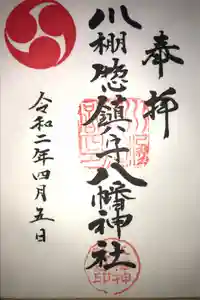 奉拝
川棚惣鎮守八幡神社
令和二年四月五日